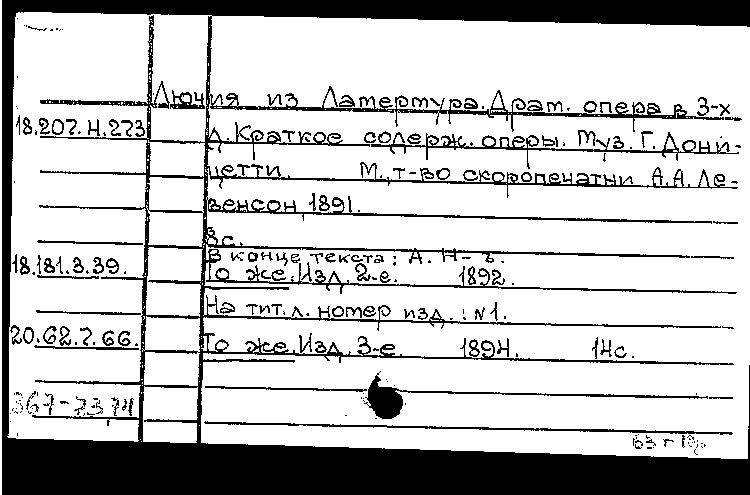 Лючия из Латермура. Драт. опера в 3-х
18.207.Н.273 д. Краткое содерж. оперы. Муз. Г. Дони-
цетти. М., т-во скоропечатни А.А. Ле-
венсон, 1891.
8с.
В конце текста: А. Н-ъ.
18.181.3.39. То же. Изд. 2-е. 1892.
На тит. л. номер изд.: №1.
20.62.7.66. То же. Изд. 3-е. 1894. 14с.
367-73,74